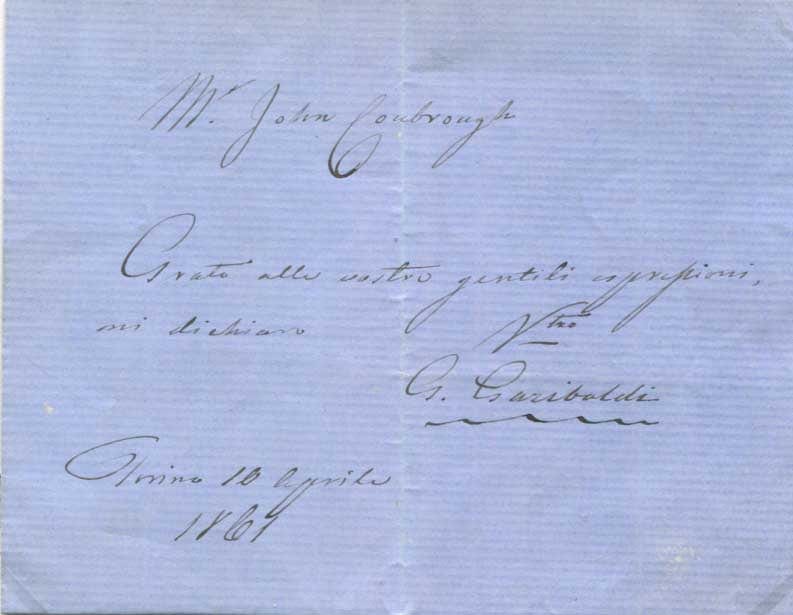 Mr. John Coubrough
Grato alle vostre gentili espressioni,
mi dichiaro Vtro
G. Garibaldi
Torino 10 Aprile
1861